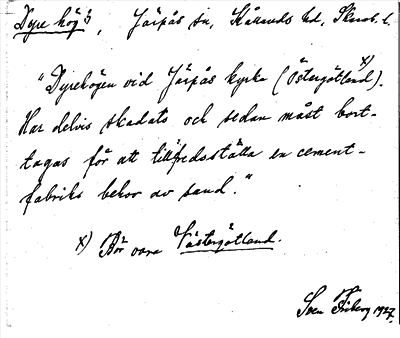 Dyre hög, Järpås sn, Kållands hd, Skarab. l.
x)
"Dyrehögen vid Järpås kyrka (Östergötland).
Har delvis skadats och sedan måst bort-
tagas för att tillfredsställa en cement-
fabriks behov av sand."
x) Bör vara Västergötland.
Sven Friberg 1927.